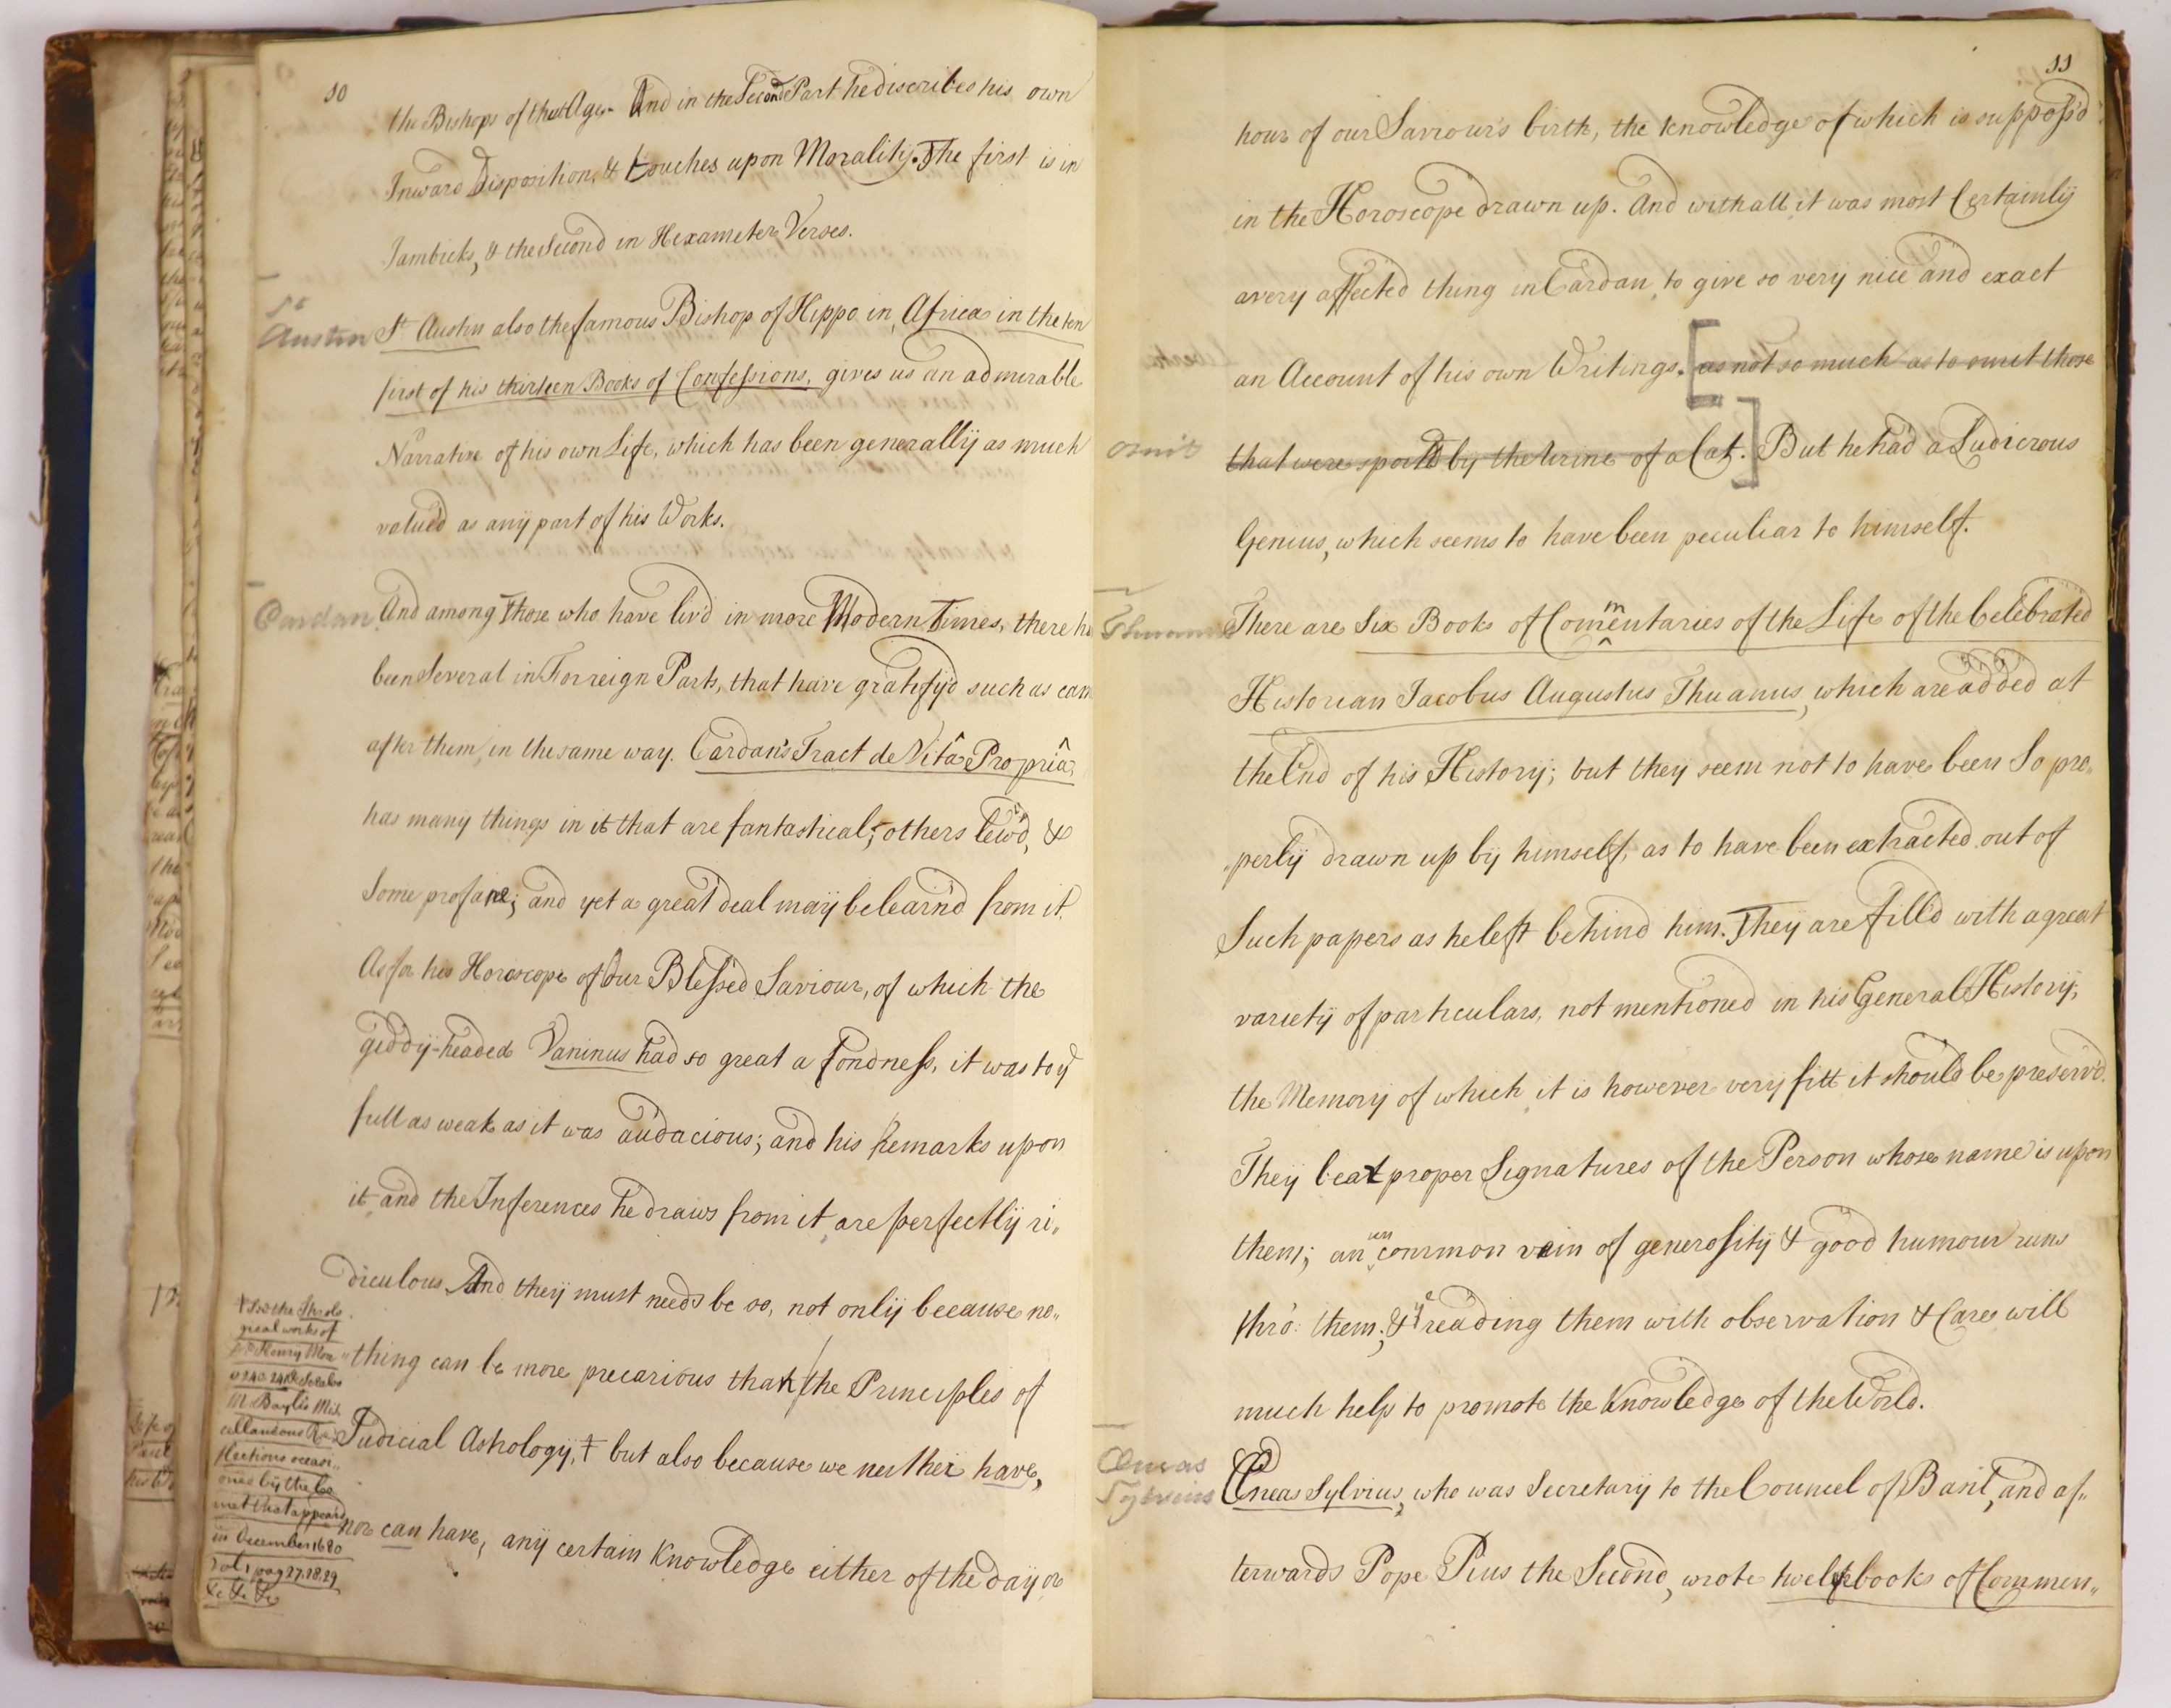 10
the Bishops of that Age. And in the Second Part he discribes his own
Inward Disposition, & touches upon Morality. The first is in
Iambicks, & the Second in Hexameter Verses.
St
Austin
St Austin also the famous Bishop of Hippo in Africa in the ten
first of his thirteen Books of Confessions, gives us an admirable
Narrative of his own Life, which has been generally as much
valued as any part of his Works.
Cardan
And among Those who have liv'd in more Modern Times, there ha
been Several in Forreign Parts, that have gratify'd such as cam
after them, in the same way. Cardan's Tract de Vitâ Propriâ,
has many things in it that are fantastical; others lewd, &
Some profane; and yet a great deal may be learn'd from it.
As for his Horoscope of Our Blessed Saviour, of which the
giddy-headed Vaninus had so great a fondness, it was to ye
full as weak as it was audacious; and his Remarks upon
it and the Inferences he draws from it, are perfectly ri„
diculous. And they must needs be so, not only because no„
„thing can be more precarious than the Principles of
Judicial Astology, ‡ but also because we neither have,
nor can have, any certain Knowledge either of the day or
‡ See the Theolo
gical works of
Dr Henry More
p 240. 241 &
Mr Bayle's Mis.
cellandous Re
flections occasi„
oned by the Co
met that appeard
in December 1680
vol 1 pag 27. 28. 29
&c &c &c
11
hour of our Saviour's birth, the knowledge of which is suppos'd
in the Horoscope drawn up. And withall it was most Certainly
a very affected thing in Cardan, to give so very nice and exact
an Account of his own Writings. [as not so much as to omit those
omit
that were spoil'd by the Urine of a Cat.] But he had a Ludicrous
Genius, which seems to have been peculiar to himself.
Thuanus
There are Six Books of Commentaries of the Life of the Celebrated
Historian Jacobus Augustus Thuanus, which are added at
the End of his History; but they seem not to have been So pro„
„perly drawn up by himself, as to have been extracted out of
Such papers as he left behind him. They are fill'd with a great
variety of particulars, not mentioned in his General History,
the Memory of which it is however very fitt it should be preserv'd.
They bear proper Signatures of the Person whose name is upon
them; an uncommon vein of generosity & good humour runs
thro: them; & ye reading them with observation & Care, will
much help to promote the Knowledge of the World.
Æneas
Sylvius
Æneas Sylvius, who was Secretary to the Councel of Basil, and af„
terwards Pope Pius the Second, wrote twelve books of Commen„